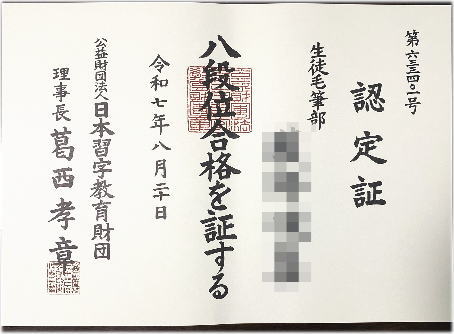 第六三四〇一号
認定証
生徒毛筆部
八段位合格を証する
令和七年八月二十日
公益財団法人日本習字教育財団
理事長 葛西孝章